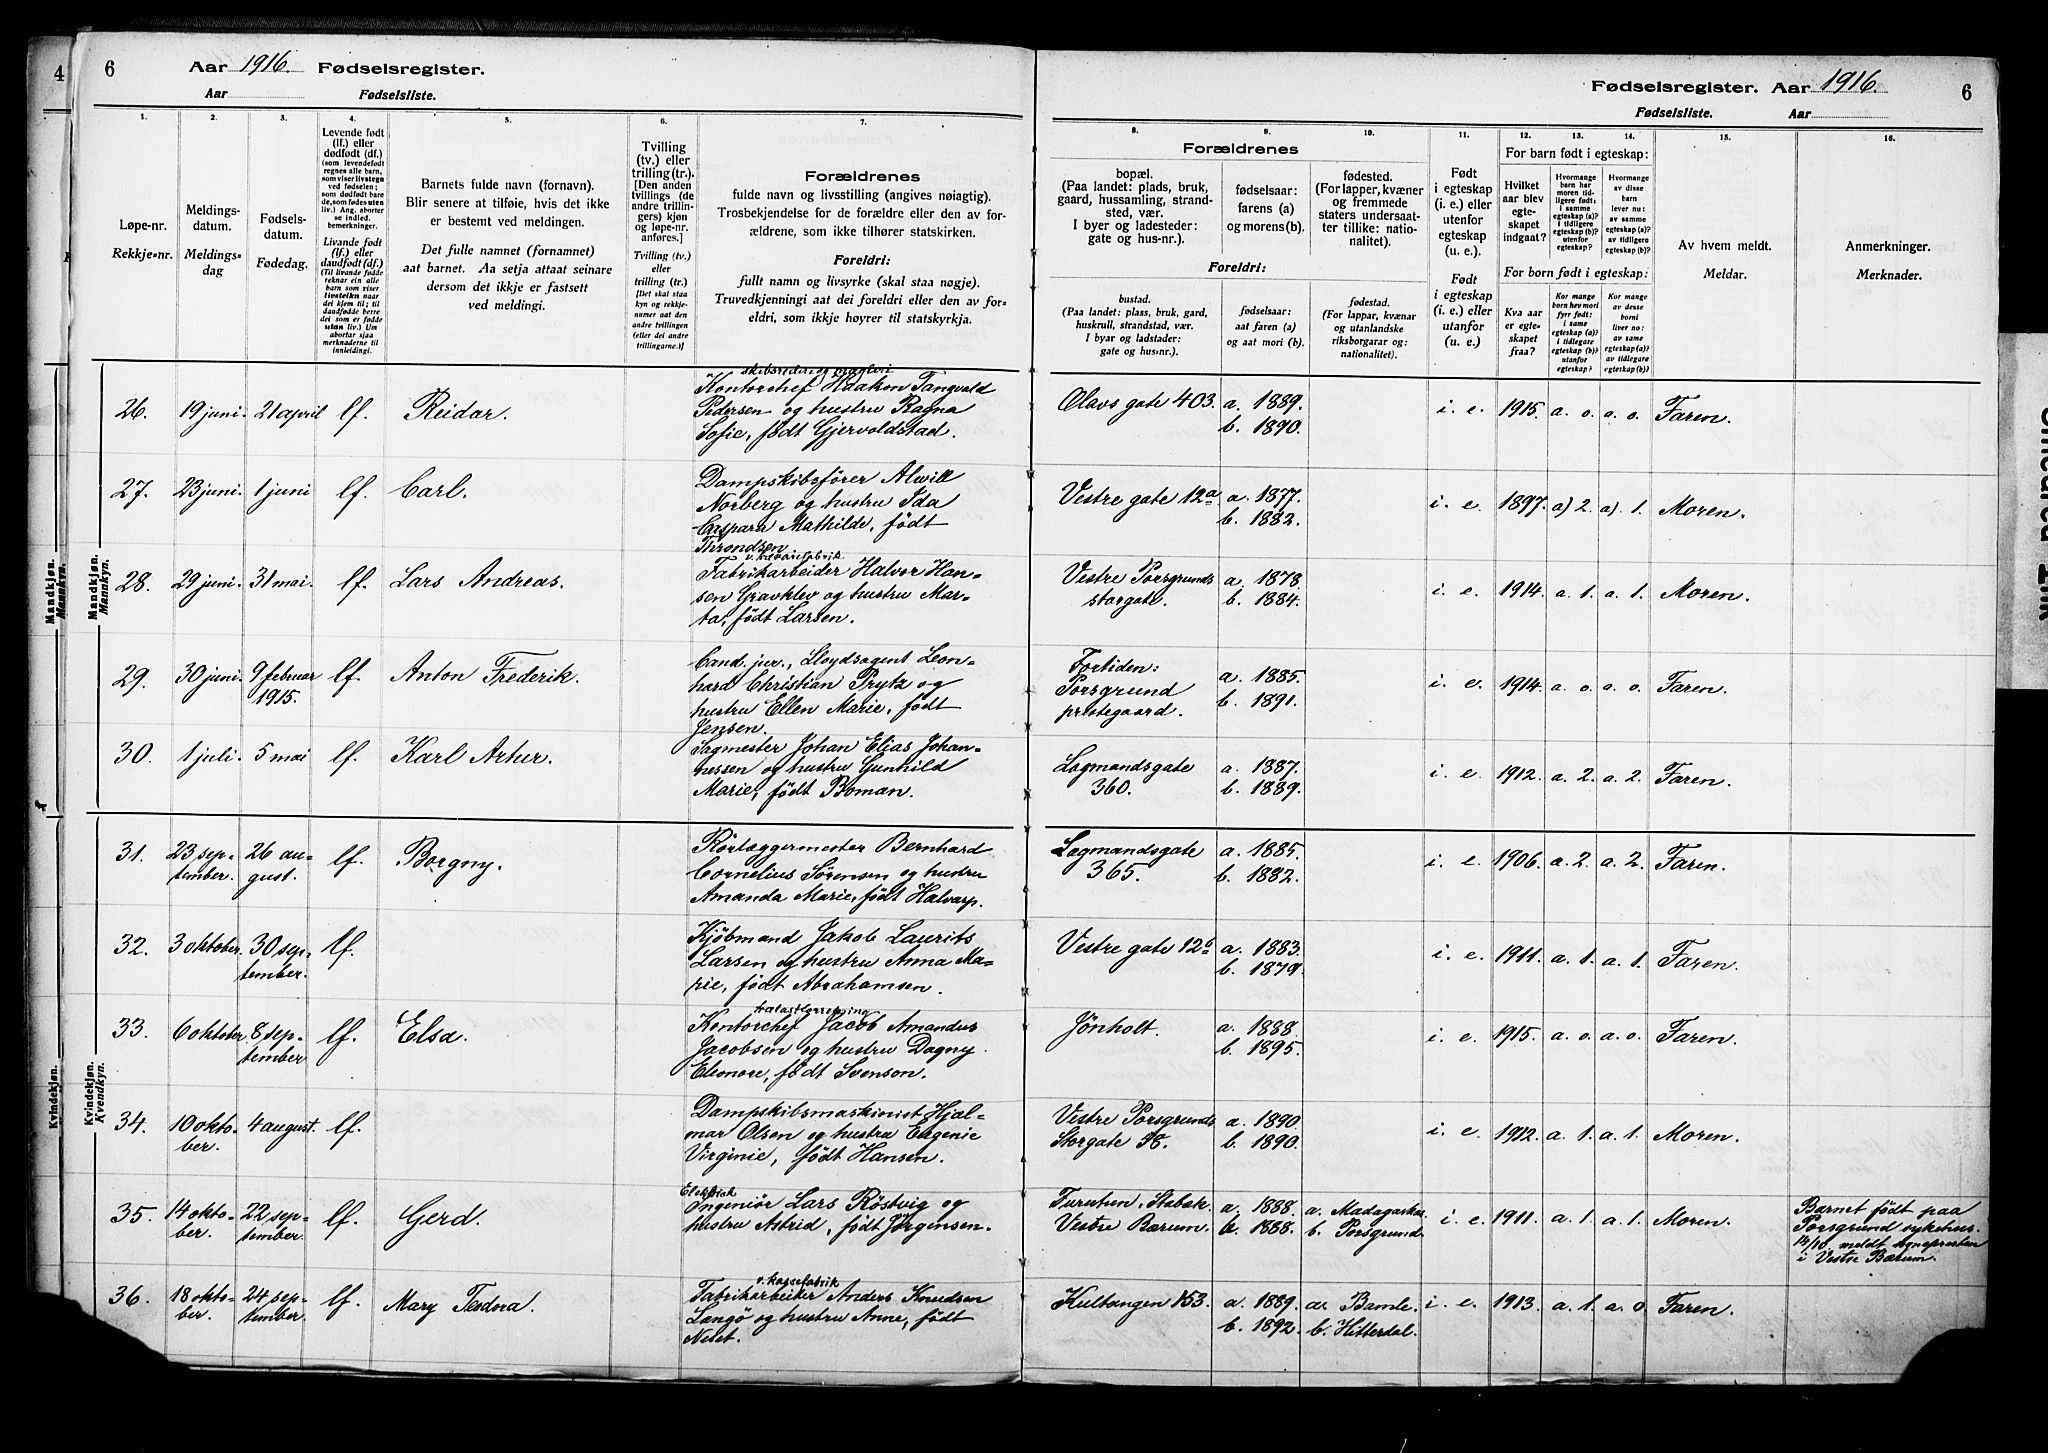 4
6
Aar 1916. Fødselsregister.
Aar Fødselsliste.
Fødselsregister. Aar 1916.
Fødselsliste. Aar
6
1.
Løpe-nr.
Rekkje-nr.
2.
Meldings-
datum.
Meldings-
dag
3.
Fødsels-
datum.
Fødedag.
4.
Levende født
(lf.) eller
dødfødt (df.)
(som levendefødt
regnes alle barn,
som viser livstegn
ved fødselen;
som dødfødt bare
de, som fødes uten
liv.) Ang. aborter
se indled.
bemerkninger.
Livande født
(lf.) eller
daudfødt (df.)
(Til livande fødde
reknar ein alle
born som viser
livsteikn naar
dei kjem til; til
daudfødde berre
dei som er fødde
utan liv.) Um
abortar sjaa
merknaderne til
innleidingi.
5.
Barnets fulde navn (fornavn).
Blir senere at tilføie, hvis det ikke
er bestemt ved meldingen.
Det fulle namnet (fornamnet)
aat barnet. Aa setja attaat seinare
dersom det ikkje er fastsett
ved meldingi.
6.
Tvilling
(tv.) eller
trilling (tr.)
[Den anden
tvillings (de
andre trillin-
gers) kjøn
og løpe-nr.
anføres.]
Tvilling (tv.)
eller
trilling (tr.)
[Det skal staa
kyn og rekkje-
numer aat den
andre tvillingen
(eller dei andre
trillingarne.)]
7.
Forældrenes
fulde navn og livsstilling (angives nøiagtig).
Trosbekjendelse for de forældre eller den av for-
ældrene, som ikke tilhører statskirken.
Foreldri:
fullt namn og livsyrke (skal staa nøgje).
Truvedkjenningi aat dei foreldri eller den av for-
eldri, som ikkje høyrer til statskyrkja.
Forældrenes
8.
bopæl.
(Paa landet: plads, bruk,
gaard, hussamling, strand-
sted, vær.
I byer og ladesteder:
gate og hus-nr.).
9.
fødselsaar:
farens (a)
og morens (b).
10.
fødested.
(For lapper, kvæner
og fremmede
staters undersaat-
ter tillike: natio-
nalitet).
Foreldri:
bustad.
(Paa landet: plass, bruk, gard,
huskrull, strandstad, vær.
I byar og ladstader:
gate og hus-nr.).
fødselsaar:
aat faren (a)
og aat mori (b).
fødestad.
(For lappar, kvænar
og utanlandske
riksborgarar og:
nationalitet).
11.
Født
i egteskap
(i. e.) eller
utenfor
egteskap
(u. e.).
Født
i egteskap
(i. e.) eller
utanfor
(u. e.).
12.
13.
14.
For barn født i egteskap:
Hvilket
aar blev
egte-
skapet
indgaat?
Hvormange
barn har
moren tid-
ligere født:
i samme
egteskap (a)?
i tidligere
egteskap (b)?
utenfor
egteskap?
Hvormange
av disse
barn
lever nu:
av samme
egteskap (a)?
av tidligere
egteskap (b)?
For born født i egteskap:
Kva aar
er egte-
skapet
fraa?
Kor mange
born hev mori
fyrr født:
i same
egteskap (a)?
i tidlegare
egteskap (b)?
utanfor
egteskap?
Kor mange
av desse
borni
liver no:
av same
egteskap (a)?
av tidlegare
egteskap (b)?
15.
Av hvem meldt.
Meldar.
16.
Anmerkninger.
Merknader.
Mandkjøn.
Mannkyn.
Mandkjøn.
Mannkyn.
26. 19 juni. 21 april lf. Reidar.
skibsrederi og mægleri
Kontorchef Haakon Tangvald
Pedersen og hustru Ragna
Sofie, født Gjervoldstad.
Olavs gate 403. a. 1889.
b. 1890.
i. e. 1915. a. o. a. o. Faren.
27. 23 juni. 1 juni lf. Carl.
Dampskibsfører Alwill
Norberg og hustru Ida
Caspara Mathilde, født
Throndsen.
Vestre gate 12a a. 1877.
b. 1882.
i. e. 1897. a) 2. a). 1. Moren.
28. 29 juni. 31 mai. lf. Lars Andreas.
Fabrikarbeider Halvor Han-
sen Gravklev og hustru Mar-
ta, født Larsen.
Vestre Porsgrunds
storgate.
a. 1878.
b. 1884.
i. e. 1914. a. 1. a. 1. Moren.
29. 30 juni. 9 februar
1915. lf. Anton Frederik.
Cand. jur., Lloydsagent Leon-
hard Christian Prytz og
hustru Ellen Marie, født
Jensen.
Fortiden:
Porsgrund
prestegaard.
a. 1885.
b. 1891.
i. e. 1914. a. o. a. o. Faren.
30. 1 juli. 5 mai lf. Karl Arhur.
Sagmester Johan Elias Johan-
nessen og hustru Gunhild
Marie, født Boman.
Lagmandsgate
360.
a. 1887.
b. 1889.
i. e. 1912. a. 2. a. 2. Faren.
Kvindekjøn.
Kvindekjøn.
Kvendkyn.
31. 23 sep-
tember. 26 au-
gust. lf. Borgny.
Rørlæggermester Bernhard
Cornelius Sørensen og hustru
Amanda Marie, født Halvarp.
Lagmandsgate
365.
a. 1885.
b. 1882.
i. e. 1906. a. 2. a. 2. Faren.
32. 3 oktober. 30 sep-
tember. lf.
Kjøbmand Jakob Laurits
Larsen og hustru Anna Ma-
rie, født Abrahamsen.
Vestre gate 12b a. 1883.
b. 1879.
i. e. 1911. a. 1. a. 1. Faren.
33. 6 oktober 8 sep-
tember lf. Elsa.
Kontorchef Jacob Amandus
Jacobsen og hustru Dagny
Eleonore, født Svenson.
Jønholt. a. 1888.
b. 1895.
i. e. 1915. a. o. a. o. Faren.
34. 10 okto-
ber. 4 august. lf.
Dampskibsmaskinist Hjal-
mar Olsen og hustru Eugenie
Virginie, født Hansen.
Vestre Porsgrunds
Storgate 38.
a. 1890
b. 1890.
i. e. 1912. a. 1. a. 1. Moren.
35. 14 okto-
ber. 22 sep-
tember. lf. Gerd.
Elektrisk
Ingeniør Lars Röstvig og
hustru Astrid, født Jørgensen.
Furutun, Stabæk.
Vestre Bærum.
a. 1888.
b. 1888.
a. Madagaskar
b. Porsgrund.
i. e. 1911. a. 1. a. 1. Moren.
Barnet født paa
Porsgrund sykehus.
14/10 meldt sognepresten
i Vestre Bærum.
36. 18 okto-
ber. 24 sep-
tember. lf. Mary Teodora.
Fabrikarbeider Anders Knudsen
Langø og hustru Anne, født
Neset.
Kultangen 153. a. 1889.
b. 1892.
a. Bamle.
b. Hitterdal.
i. e. 1913. a. 1. a. o. Faren.